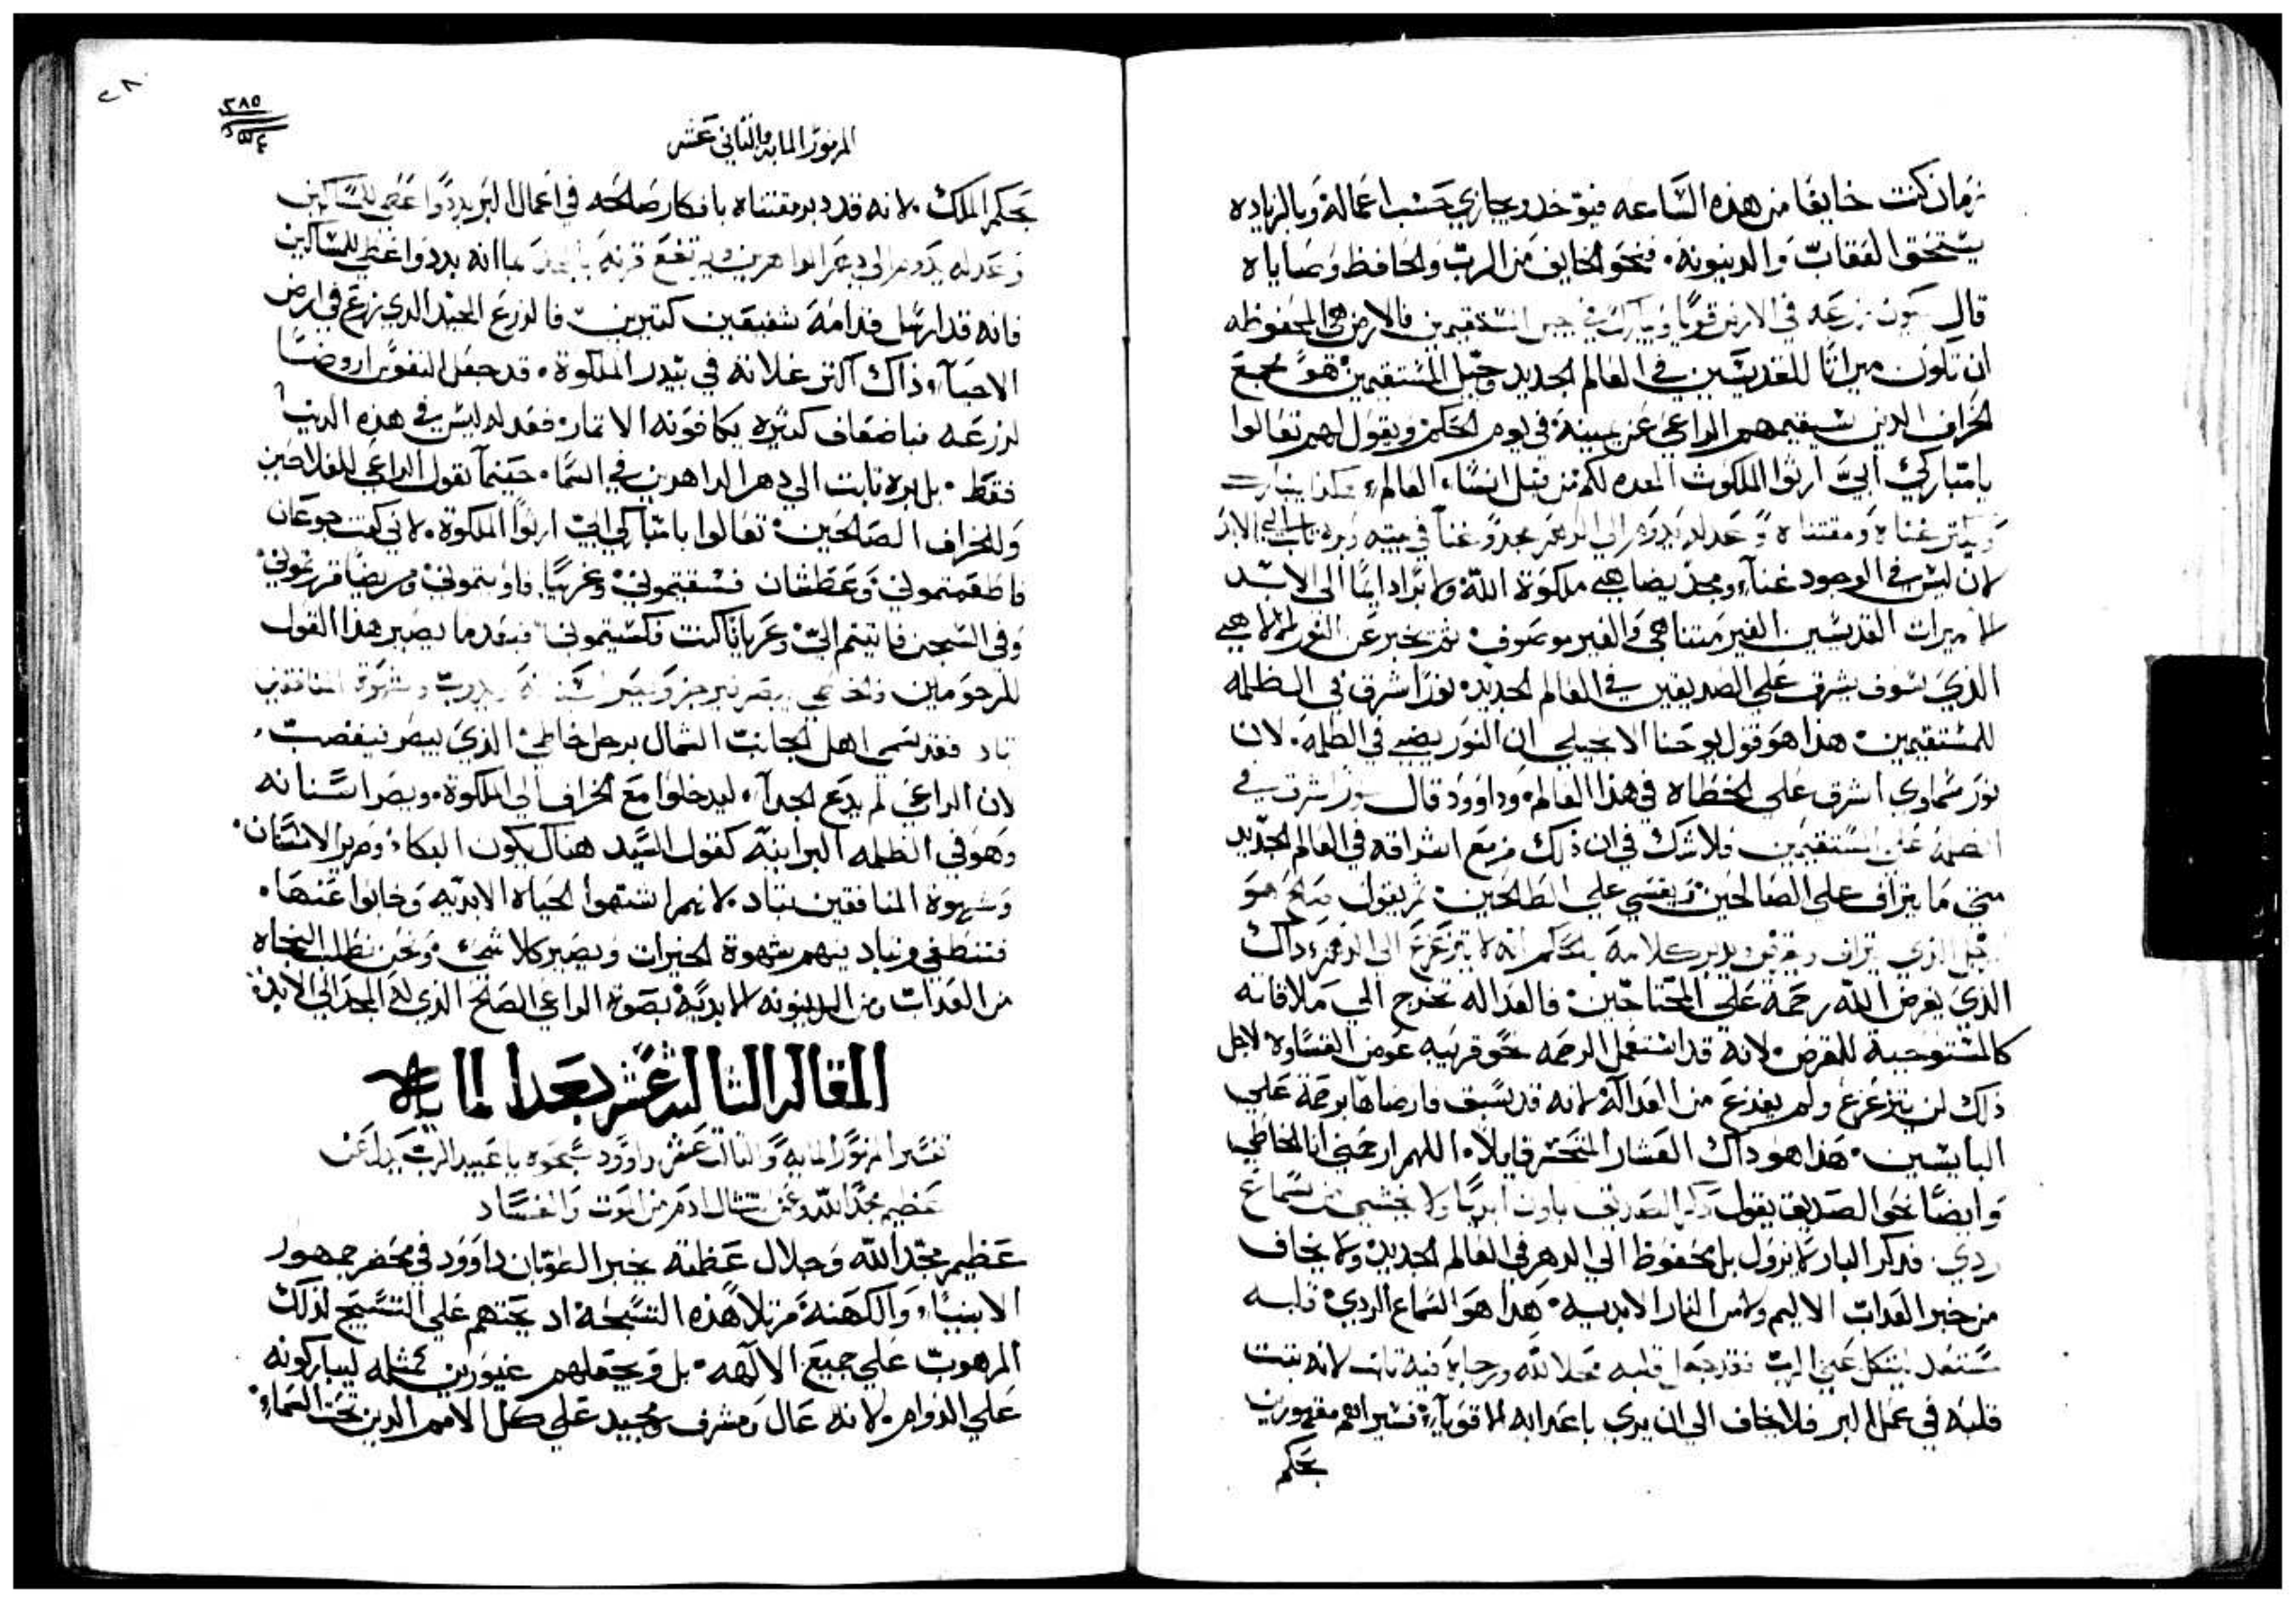 زمان كنت خايفًا من هذه الساعه فيوخد ويجازي حسب اعماله وبالزياده
يستحق العقاب والدينونه. فنحو الخايف من الرب والحافظ وصاياه
قال يكون زرعه في الارض قويًا ويبارك في جيل المستقيمين فالارض هي المحفوظه
ان تكون ميراثا للقديسين في العالم الجديد وجيل المستقيمين هو مجمع
الخراف الدين يقيمهم الراعي عن يمينه في يوم الحكم ويقول لهم تعالوا
يا مباركي ابي ارثوا الملكوت المعده لكم من قبل انشاء العالم
غناه ومقتناه وعدله يدوم الي الدهر مجد وغنا في بيته وبره ثابت الي الابد
لان ليس في الوجود غناء ومجد يضاهي ملكوة الله ولا براد ايمًا الي الابد
ميراث القديسين الغير متناهي والغير موصوف ثم يخبر عن النور الالاهي
الذي سوف يشرق علي الصديقين في العالم الجديد نورًا اشرق في الظلمه
للمستقيمين هذا هو قول يوحنا الانجيلي ان النور يضي في الظلمه. لان
نور سماوي اشرق علي الخطاه في هذا العالم وداوود قال نورًا اشرق في
الظلمة علي المستقيمين فلا شك في ان ذلك مزمع اشراقه في العالم الجديد
متي ما يتراف علي الصالحين ويقسي علي الطالحين ثم يقول صالح هو
الرجل الذي يتراف ويقرض ويدبر كلامه بالحكم انه لا يتزعزع الي الدهر داك
الذي يقرض الله رحمة علي المحتاجين فالعداله تخرج الي ملاقاته
كالمستوجبة للقرض لانه قد استعمل الرحمه نحو قريبه عوض القساوة لاجل
ذلك لن يتزعزع ولم يفزع من العدالة لانه قد سبق فارضاها برحمة علي
البايسين هذا هو داك العشار المتحسر قايلاً اللهم ارحمني انا الخاطي
وايضًا نحو الصديق يقول ذكر الصديق يكون ابديًا ولا يخشي من سماع
ردي. فدكر البار لا يزول بل محفوظ الي الدهر في العالم الجديد ولا يخاف
من خبر العداب الاليم ولا من النار الابديه هذا هو السماع الردي قلبه
مستعد ليتكل علي الرب فقد جعل قلبه محلا لله ورجاه فيه ثابت لانه يثبت
قلبه في عمل البر فلا يخاف الي ان يري باعدايه الاقوياء فسيراهم مقهورين
بحكم
٢٨٥
المزمور المايه والثاني عشر
بحكم الملك لانه قد دبر مقتناه بافكار صالحه في اعمال البر بددوا عطي للمساكين
وعدله يدوم الي دهر الداهرين يرتفع قرنه بالمجد بما انه بددوا عطي للمساكين
فانه قد ارسل قدامه شفيعين كتيرين فالزرع الجيد الدي زرع في ارض
الاحباء ذاك اكثر غلاته في بيدر الملكوة قد جعل النفوس اروضًا
لزرعه فباضعاف كثيره يكافونه الاتمار فعدله ليس في هذه الدنيا
فقط بل بره ثابت الي دهر الداهرين في السماء حينما يقول الراعي للفلاحين
وللخراف الصالحين تعالوا يا مباركي ابي ارثوا الملكوة لاني كنت جوعان
فاطعمتموني وعطشان فسقيتموني وغريبًا فاويتموني ومريضًا فزرتموني
وفي السجن فاتيتم الي وعريانًا كنت فكسيتموني فبعدما يصير هذا القول
للمرحومين والخاطي يبصر فيرجز ويصر اسنانه ويدوب وشهوة المنافقين
تباد فقد سمي اهل الجانب الشمال برجل خاطي الذي يبصر فيغضب
لان الراعي لم يدع الجداء ليدخلوا مع الخراف الي الملكوة ويصر اسنانه
وهو في الظلمه البرانية كقول السيد هناك يكون البكاء وصرير الاسنان
وشهوة المنافقين تباد لانهم اشتهوا الحياه الابديه وخابوا عنها
فتنطفي وتباد منهم شهوة الخيرات ويصير كلا شي ونحن نطلب النجاه
من العداب ومن الدينونه الابدية بصوة الراعي الصالح الذي له المجد الي الابد
المقاله الثالثة عشر بعد المايه
تفسير المزمور المايه والثالث عشر لداوود سبحوه يا عبيد الرب يدل عن
عظيم مجد الله وعن انتشال ادم من الموت والفساد
عظيم مجد الله وجلال عظمته يخبر المرتل داوود في محضر جمهور
الانبياء والكهنة مرتلاً هذه التسبحة اد يحتهم علي التسبيح لذلك
المرهوب علي جميع الالهه بل ويجعلهم غيورين كمثله ليباركونه
علي الدوام لانه عال ومشرف ومجيد علي كل الامم الدين تحت السماء